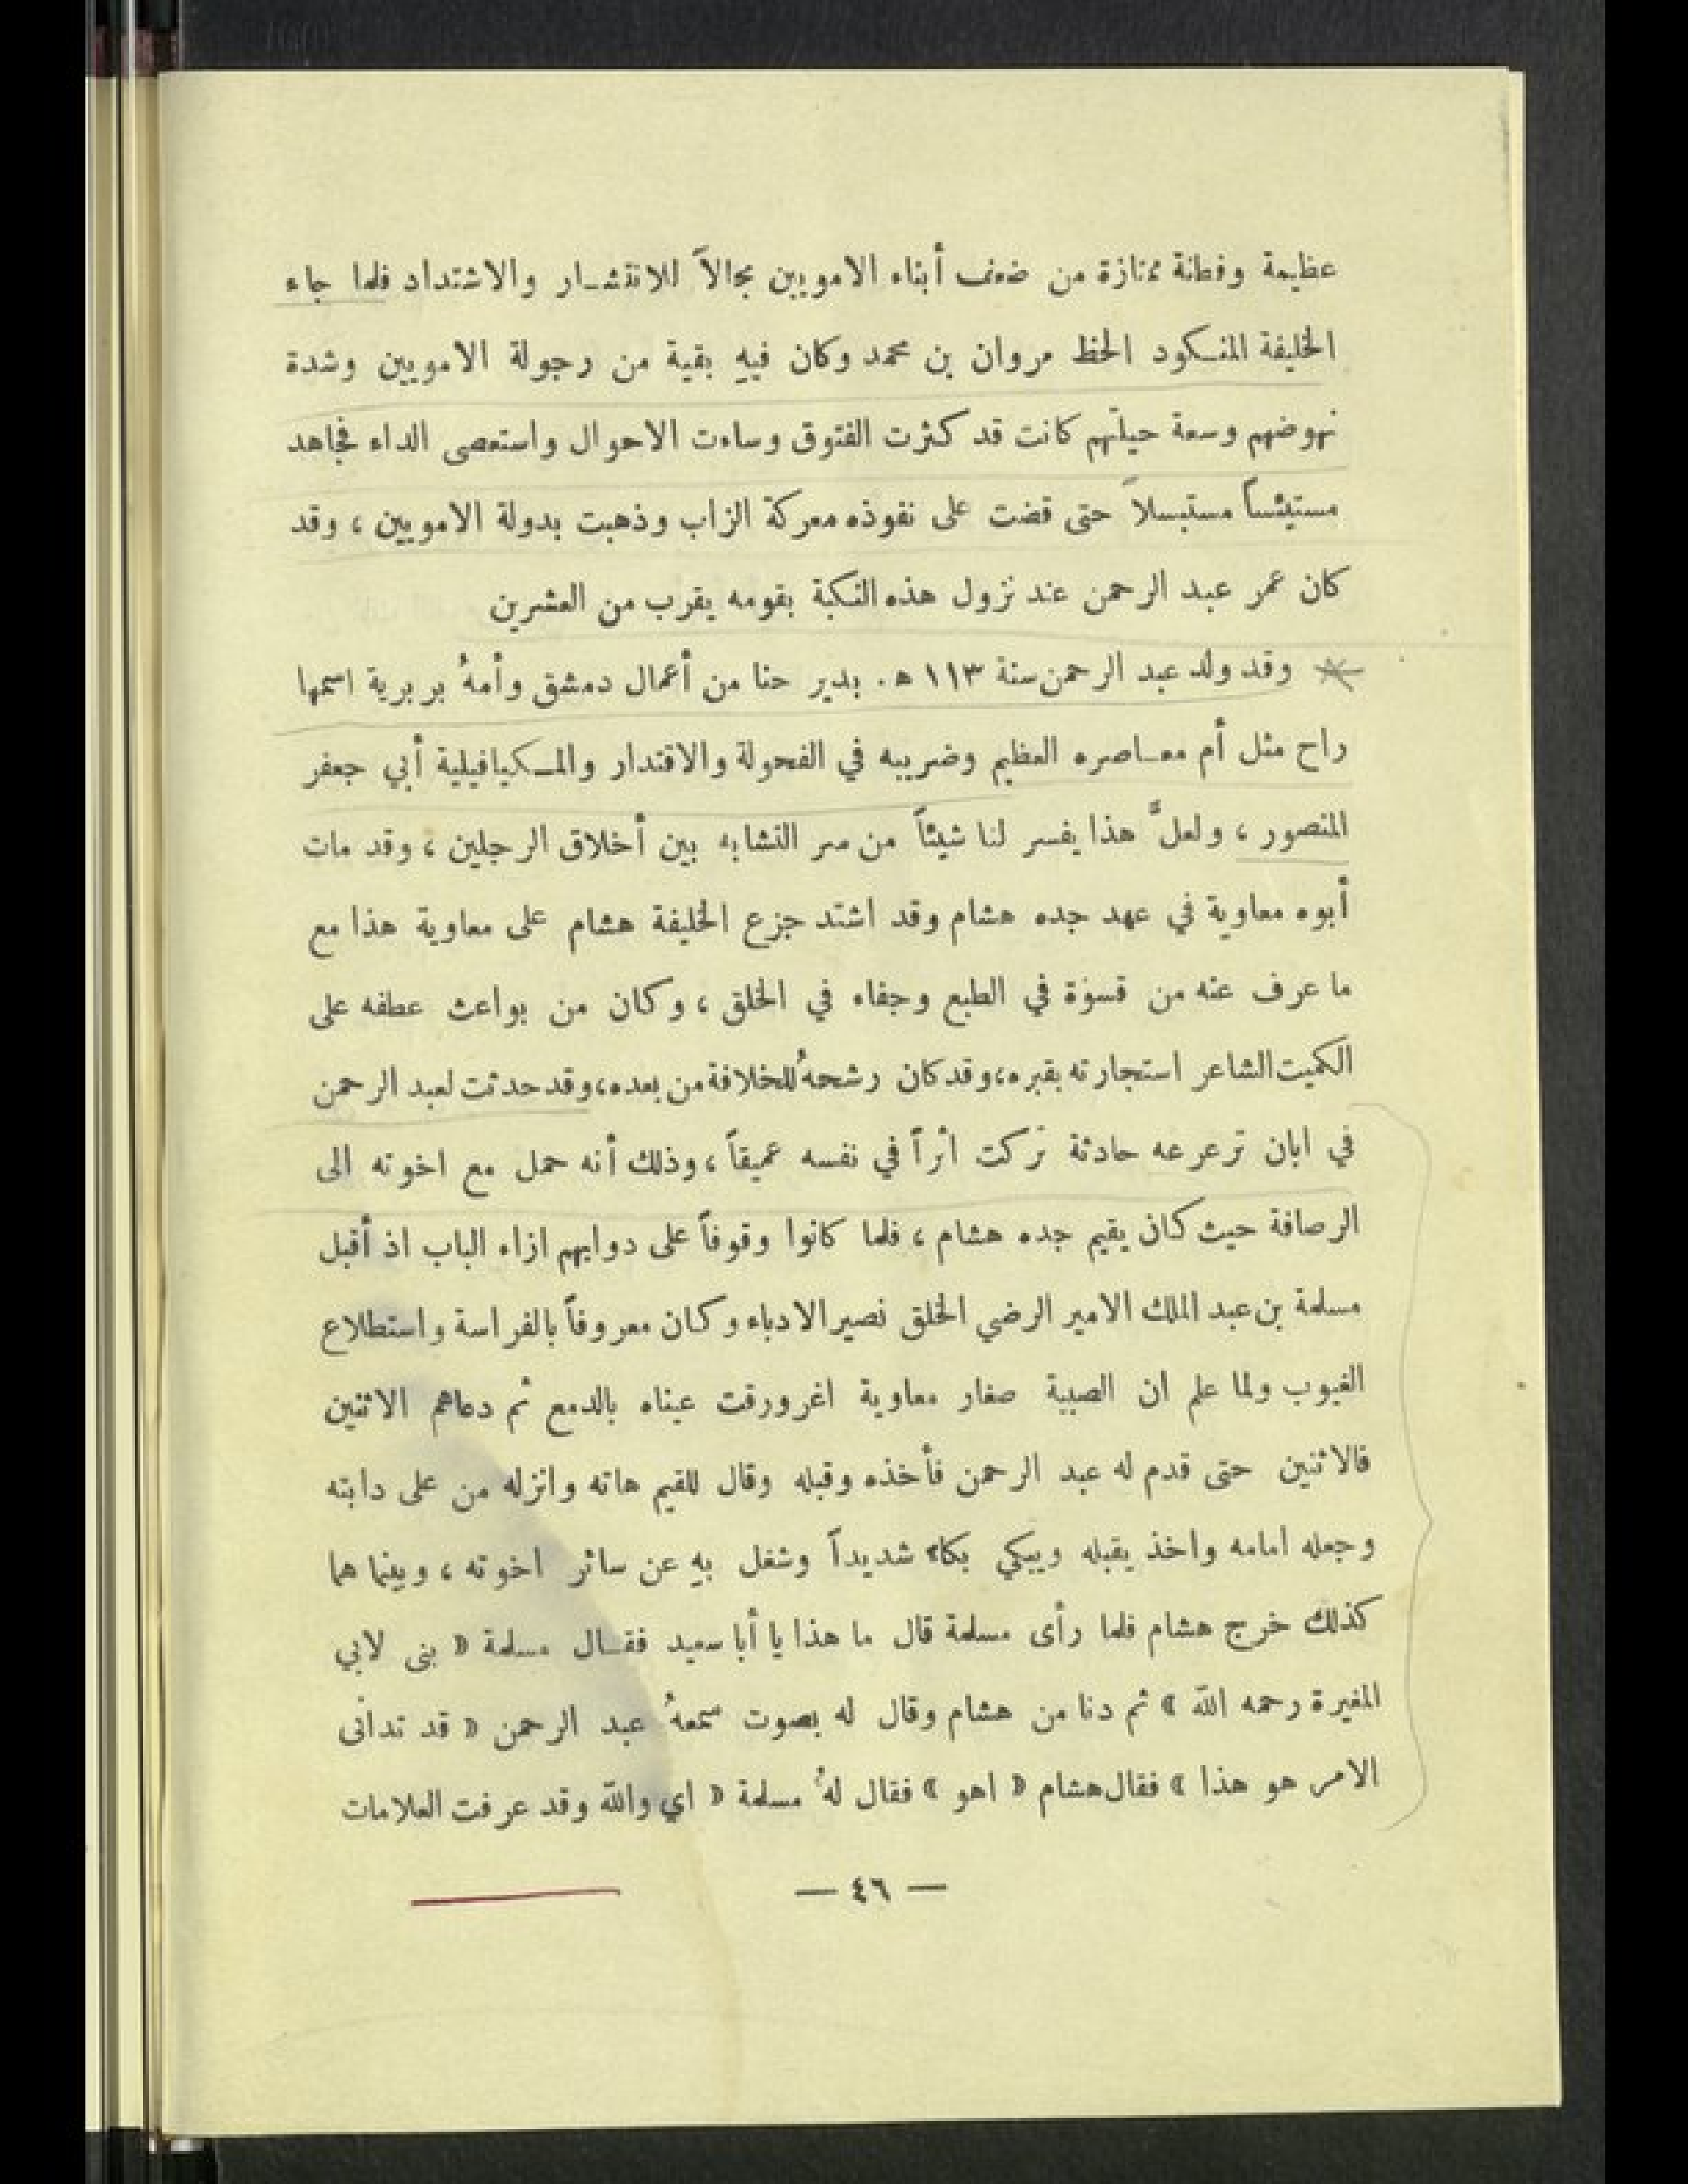 عظيمة وفطنة ممتازة من ضعف أبناء الامويين مجالاً للانتشار والاشتداد فلما جاء
الخليفة المنكود الحظ مروان بن محمد وكان فيهِ بقية من رجولة الامويين وشدة
نهوضهم وسعة حيلتهم كانت قد كثرت الفتوق وساءت الاحوال واستعصى الداء فجاهد
مستيئساً مستبسلاً حتى قضت على نفوذه معركة الزاب وذهبت بدولة الامويين ، وقد
كان عمر عبد الرحمن عند نزول هذه النكبة بقومه يقرب من العشرين
وقد ولد عبد الرحمن سنة ١١٣ ه. بدير حنا من أعمال دمشق وأمهُ بربرية اسمها
راح مثل أم معاصره العظيم وضريبه في الفحولة والاقتدار والمكيافيلية أبي جعفر
المنصور ، ولعلَّ هذا يفسر لنا شيئاً من سر التشابه بين أخلاق الرجلين ، وقد مات
أبوه معاوية في عهد جده هشام وقد اشتد جزع الخليفة هشام على معاوية هذا مع
ما عرف عنه من قسوة في الطبع وجفاء في الخلق ، وكان من بواعث عطفه على
الكميت الشاعر استجارته بقبره ، وقد كان رشحهُ للخلافة من بعده ، وقد حدثت لعبد الرحمن
في ابان ترعرعه حادثة تركت اثراً في نفسه عميقاً ، وذلك أنه حمل مع اخوته الى
الرصافة حيث كان يقيم جده هشام ، فلما كانوا وقوفاً على دوابهم ازاء الباب اذ أقبل
مسلمة بن عبد الملك الامير الرضي الخلق نصير الادباء وكان معروفاً بالفراسة واستطلاع
الغيوب ولما علم ان الصبية صغار معاوية اغرورقت عيناه بالدمع ثم دعاهم الاثنين
فالاثنين حتى قدم له عبد الرحمن فأخذه وقبله وقال للقيم هاته وانزله من على دابته
وجعله امامه واخذ يقبله ويبكي بكاء شديداً وشغل بهِ عن سائر اخوته ، وبينما هما
كذلك خرج هشام فلما رأى مسلمة قال ما هذا يا أبا سعيد فقال مسلمة « بنى لابي
المغيرة رحمه الله » ثم دنا من هشام وقال له بصوت سمعهُ عبد الرحمن « قد تدانى
الامر هو هذا » فقال هشام « اهو » فقال لهُ مسلمة « اي والله وقد عرفت العلامات
— ٤٦ —